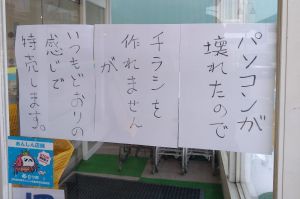 パソコンが
壊れたので
チラシを
作れません
が
いつもどおりの
感じで
特売します。
あんしん店舗